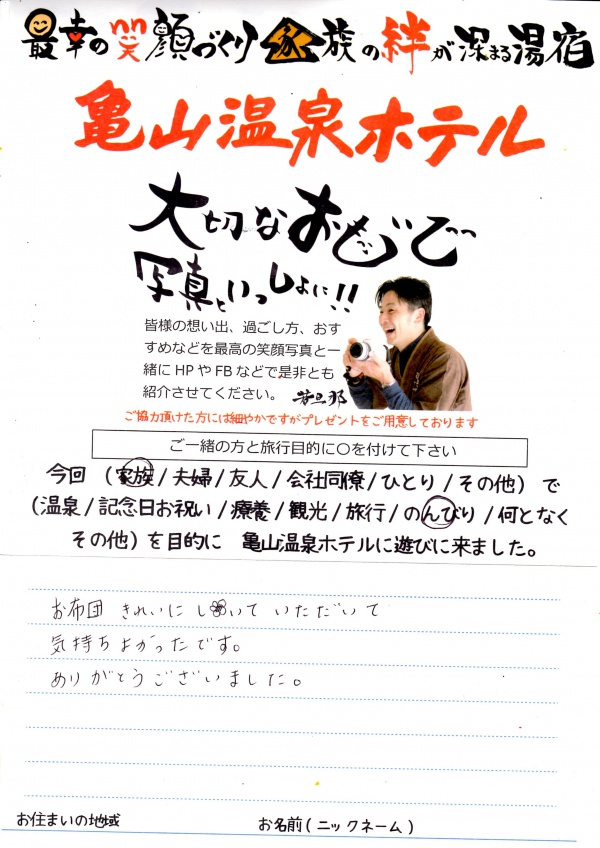 最幸の笑顔づくり 家族の絆が深まる湯宿
亀山温泉ホテル
大切なおもいで
写真といっしょに!!
皆様の想い出、過ごし方、おす
すめなどを最高の笑顔写真と一
緒にHPやFBなどで是非とも
紹介させてください。 若旦那
ご協力頂けた方には細やかですがプレゼントをご用意しております
ご一緒の方と旅行目的に〇を付けて下さい
今回 (家族/夫婦/友人/会社同僚/ひとり/その他) で
(温泉/記念日お祝い/療養/観光/旅行/のんびり/何となく
その他) を目的に 亀山温泉ホテルに遊びに来ました。
お布団 きれいに しいて いただいて
気持ちよかったです。
ありがとうございました。
お住まいの地域 お名前(ニックネーム)